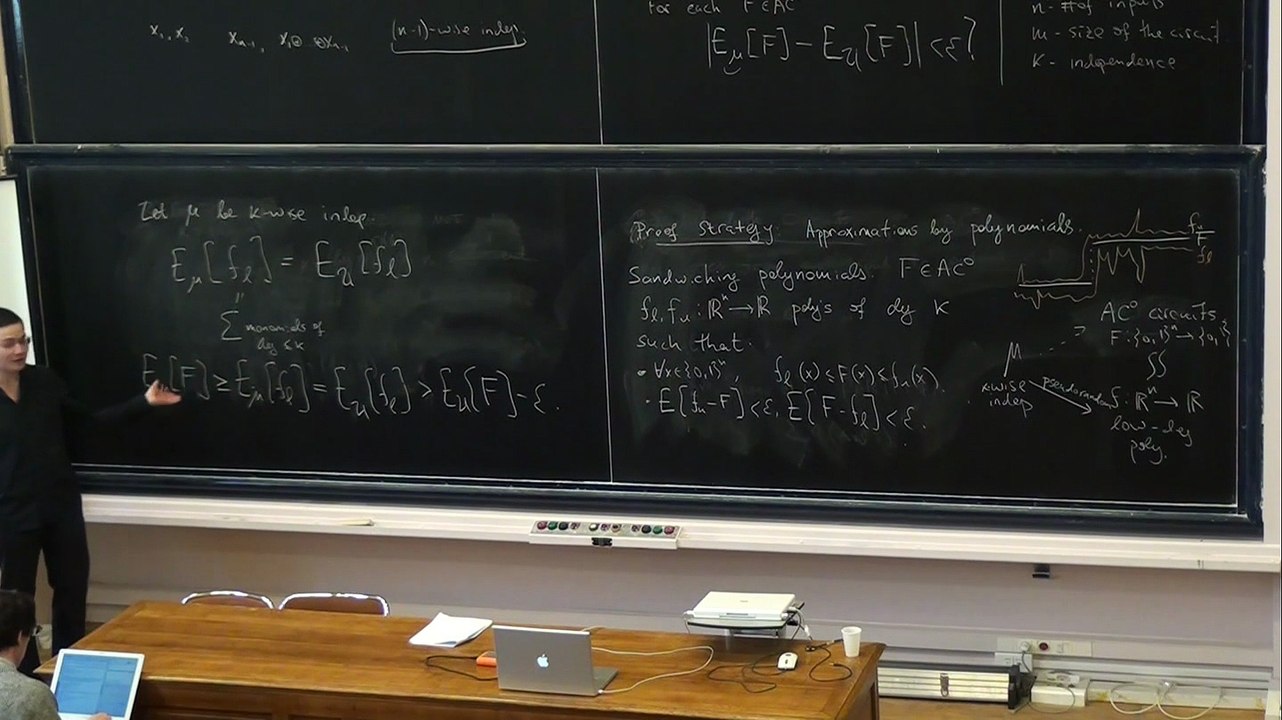 x₁, x₂ xₙ₋₁, x₁⊕ ⊕xₙ₋₁ (n-1)-wise indep.
for each F∈AC⁰
|E_μ[F] - E_U[F]| < ε?
n - # of inputs
m - size of the circuit
K - independence
Let μ be k-wise indep.
E_μ[f_ℓ] = E_U[f_ℓ]
"
∑ monomials of
deg ≤k
E_μ[F] ≥ E_μ[f_ℓ] = E_U[f_ℓ] > E_U[F] - ε.
Proof strategy: Approximations by polynomials.
Sandwiching polynomials. F∈AC⁰
f_ℓ, f_u : ℝⁿ → ℝ poly's of deg K
such that:
• ∀x∈{0,1}ⁿ, f_ℓ(x) ≤ F(x) ≤ f_u(x).
• E[f_u - F] < ε, E[F - f_ℓ] < ε.
f_u
F
f_ℓ
AC⁰ circuits
F: {0,1}ⁿ → {0,1}
?
μ
k-wise
indep
pseudorandom
f: ℝⁿ → ℝ
low-deg
poly.